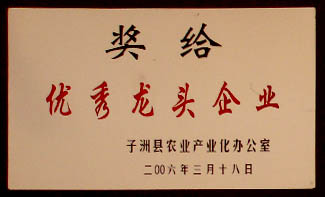 奖给
优秀龙头企业
子洲县农业产业化办公室
二00六年三月十八日